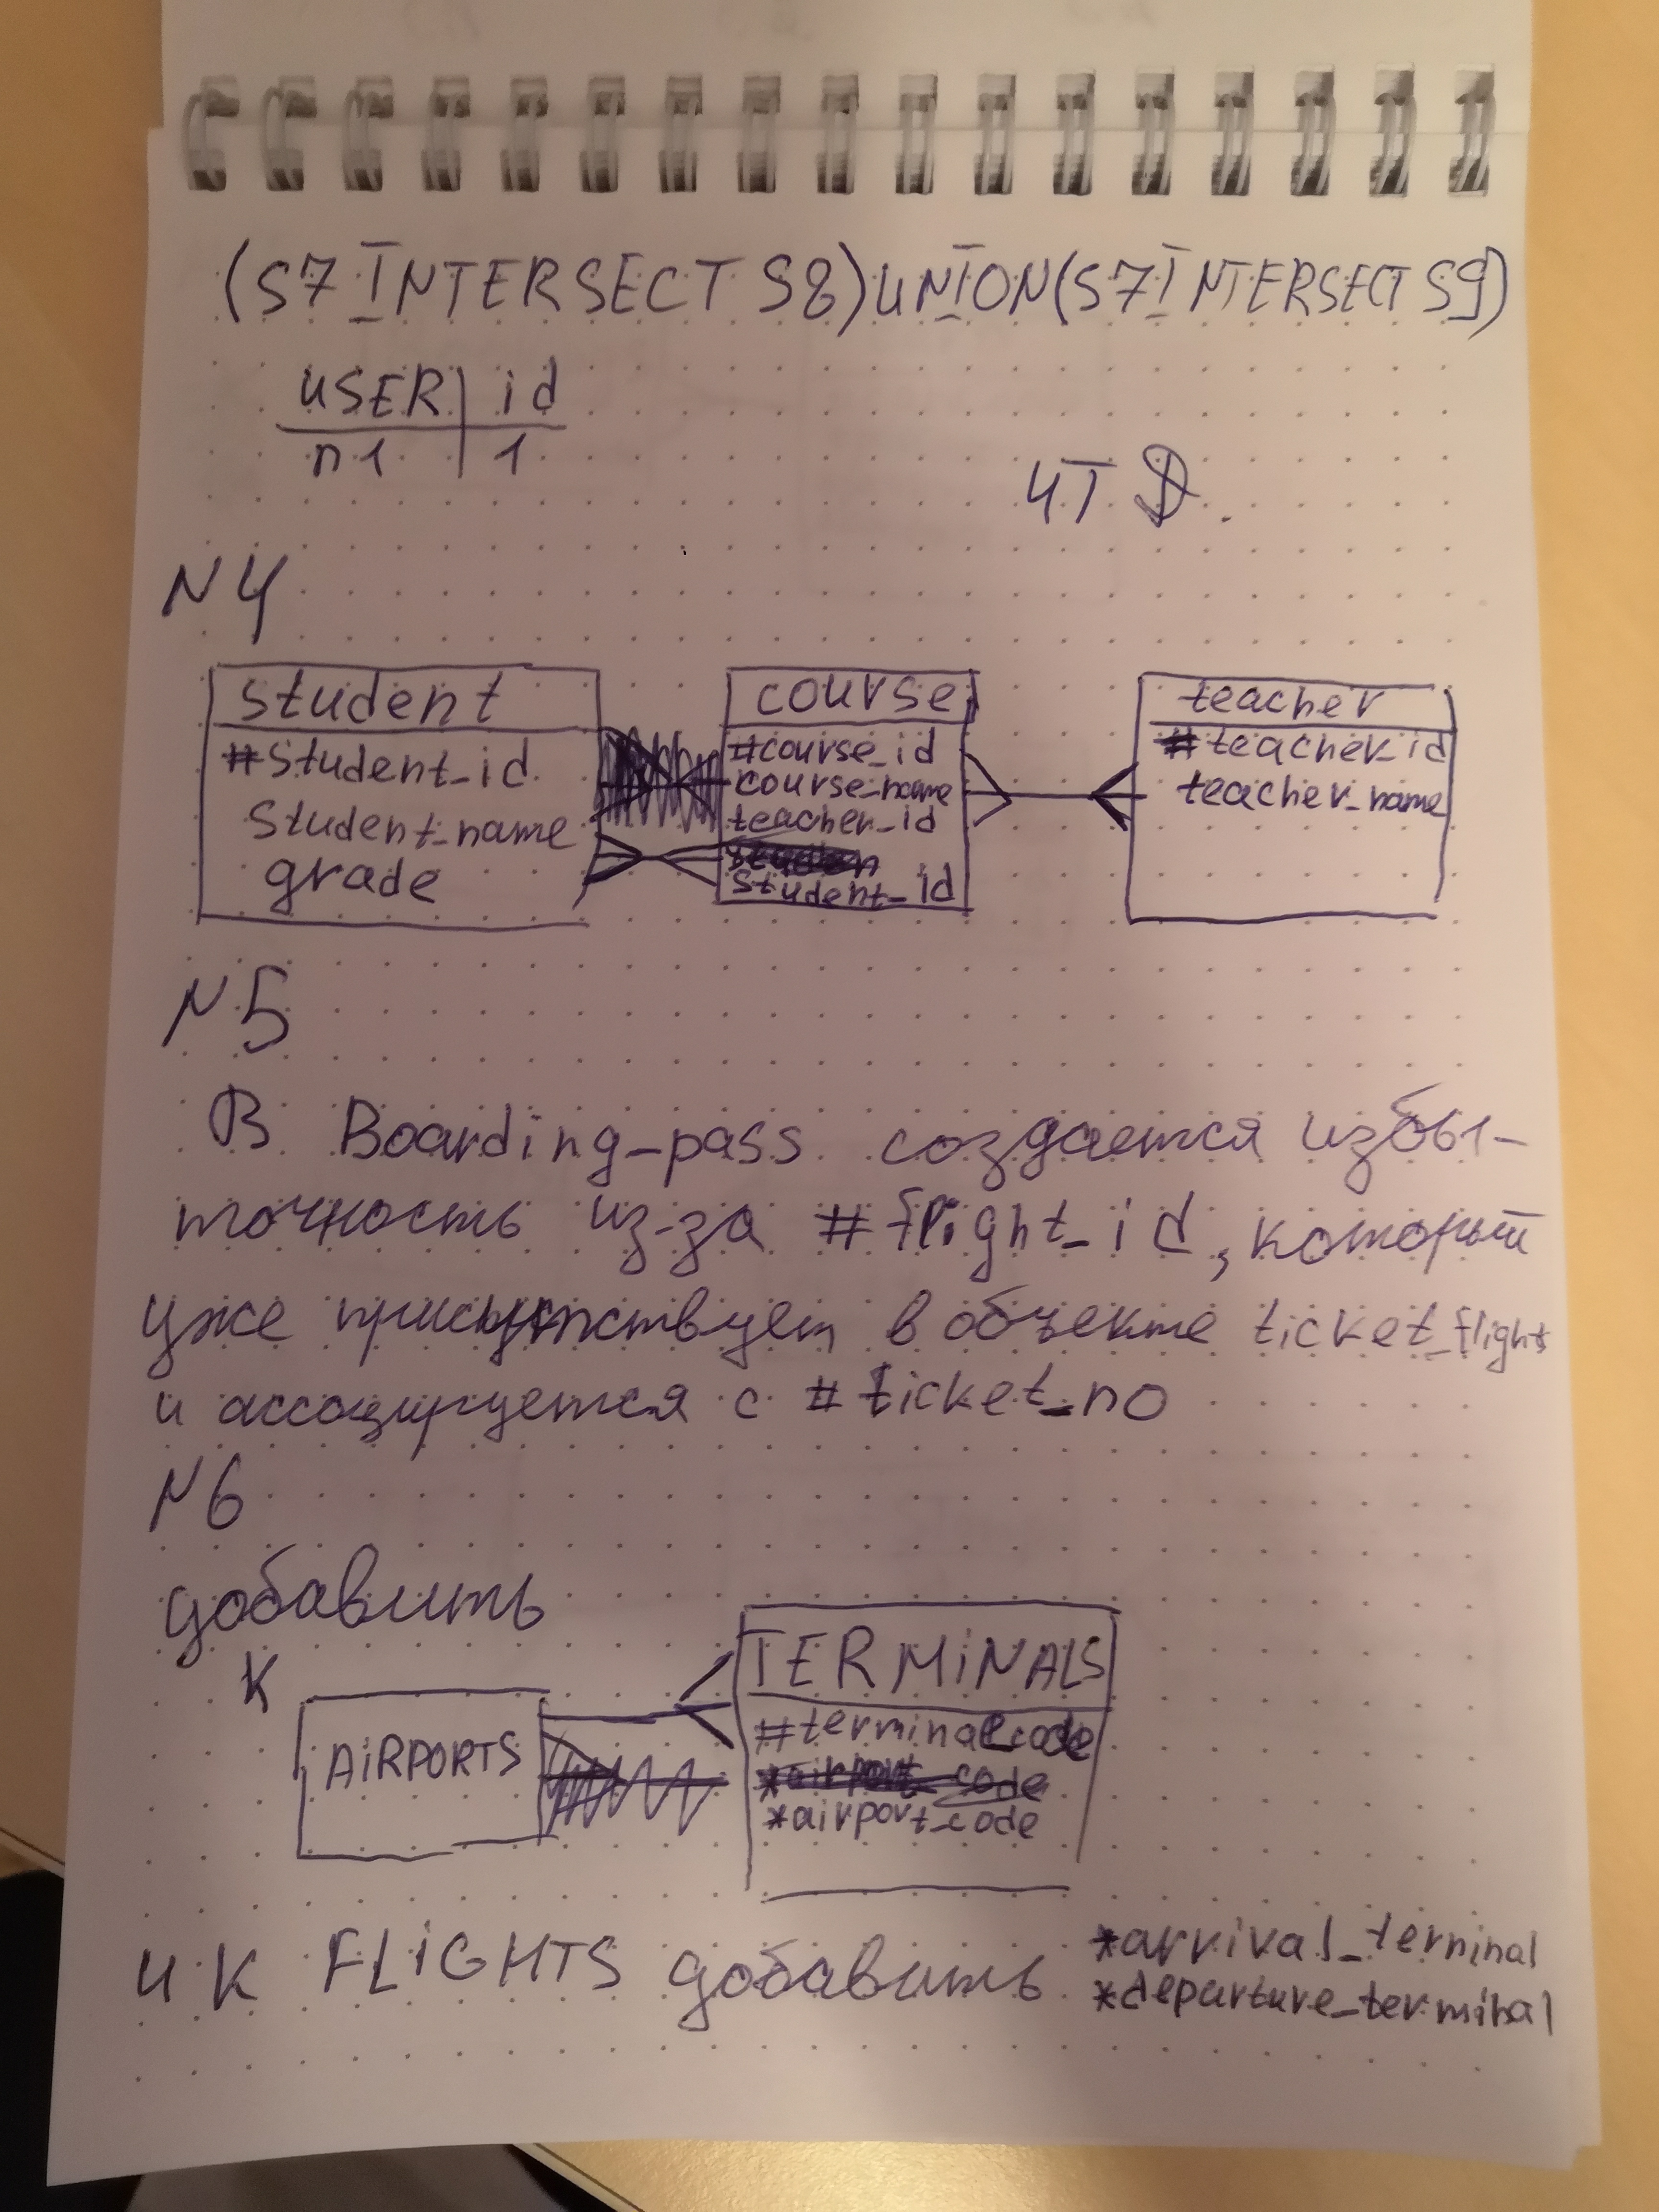 (S7 INTERSECT S8) UNION (S7 INTERSECT S9)
USER | id
n1 | 1
ЧТД.
N4
student
#student_id
student_name
grade
course
#course_id
course_name
teacher_id
student_id
teacher
#teacher_id
teacher_name
N5
В Boarding_pass создается избы-
точность из-за #flight_id, который
уже присутствует в объекте ticket_flights
и ассоциируется с #ticket_no
N6
добавить
к
AIRPORTS
TERMINALS
#terminal_code
*airport_code
*airport_code
и к FLIGHTS добавить
*arrival_terminal
*departure_terminal